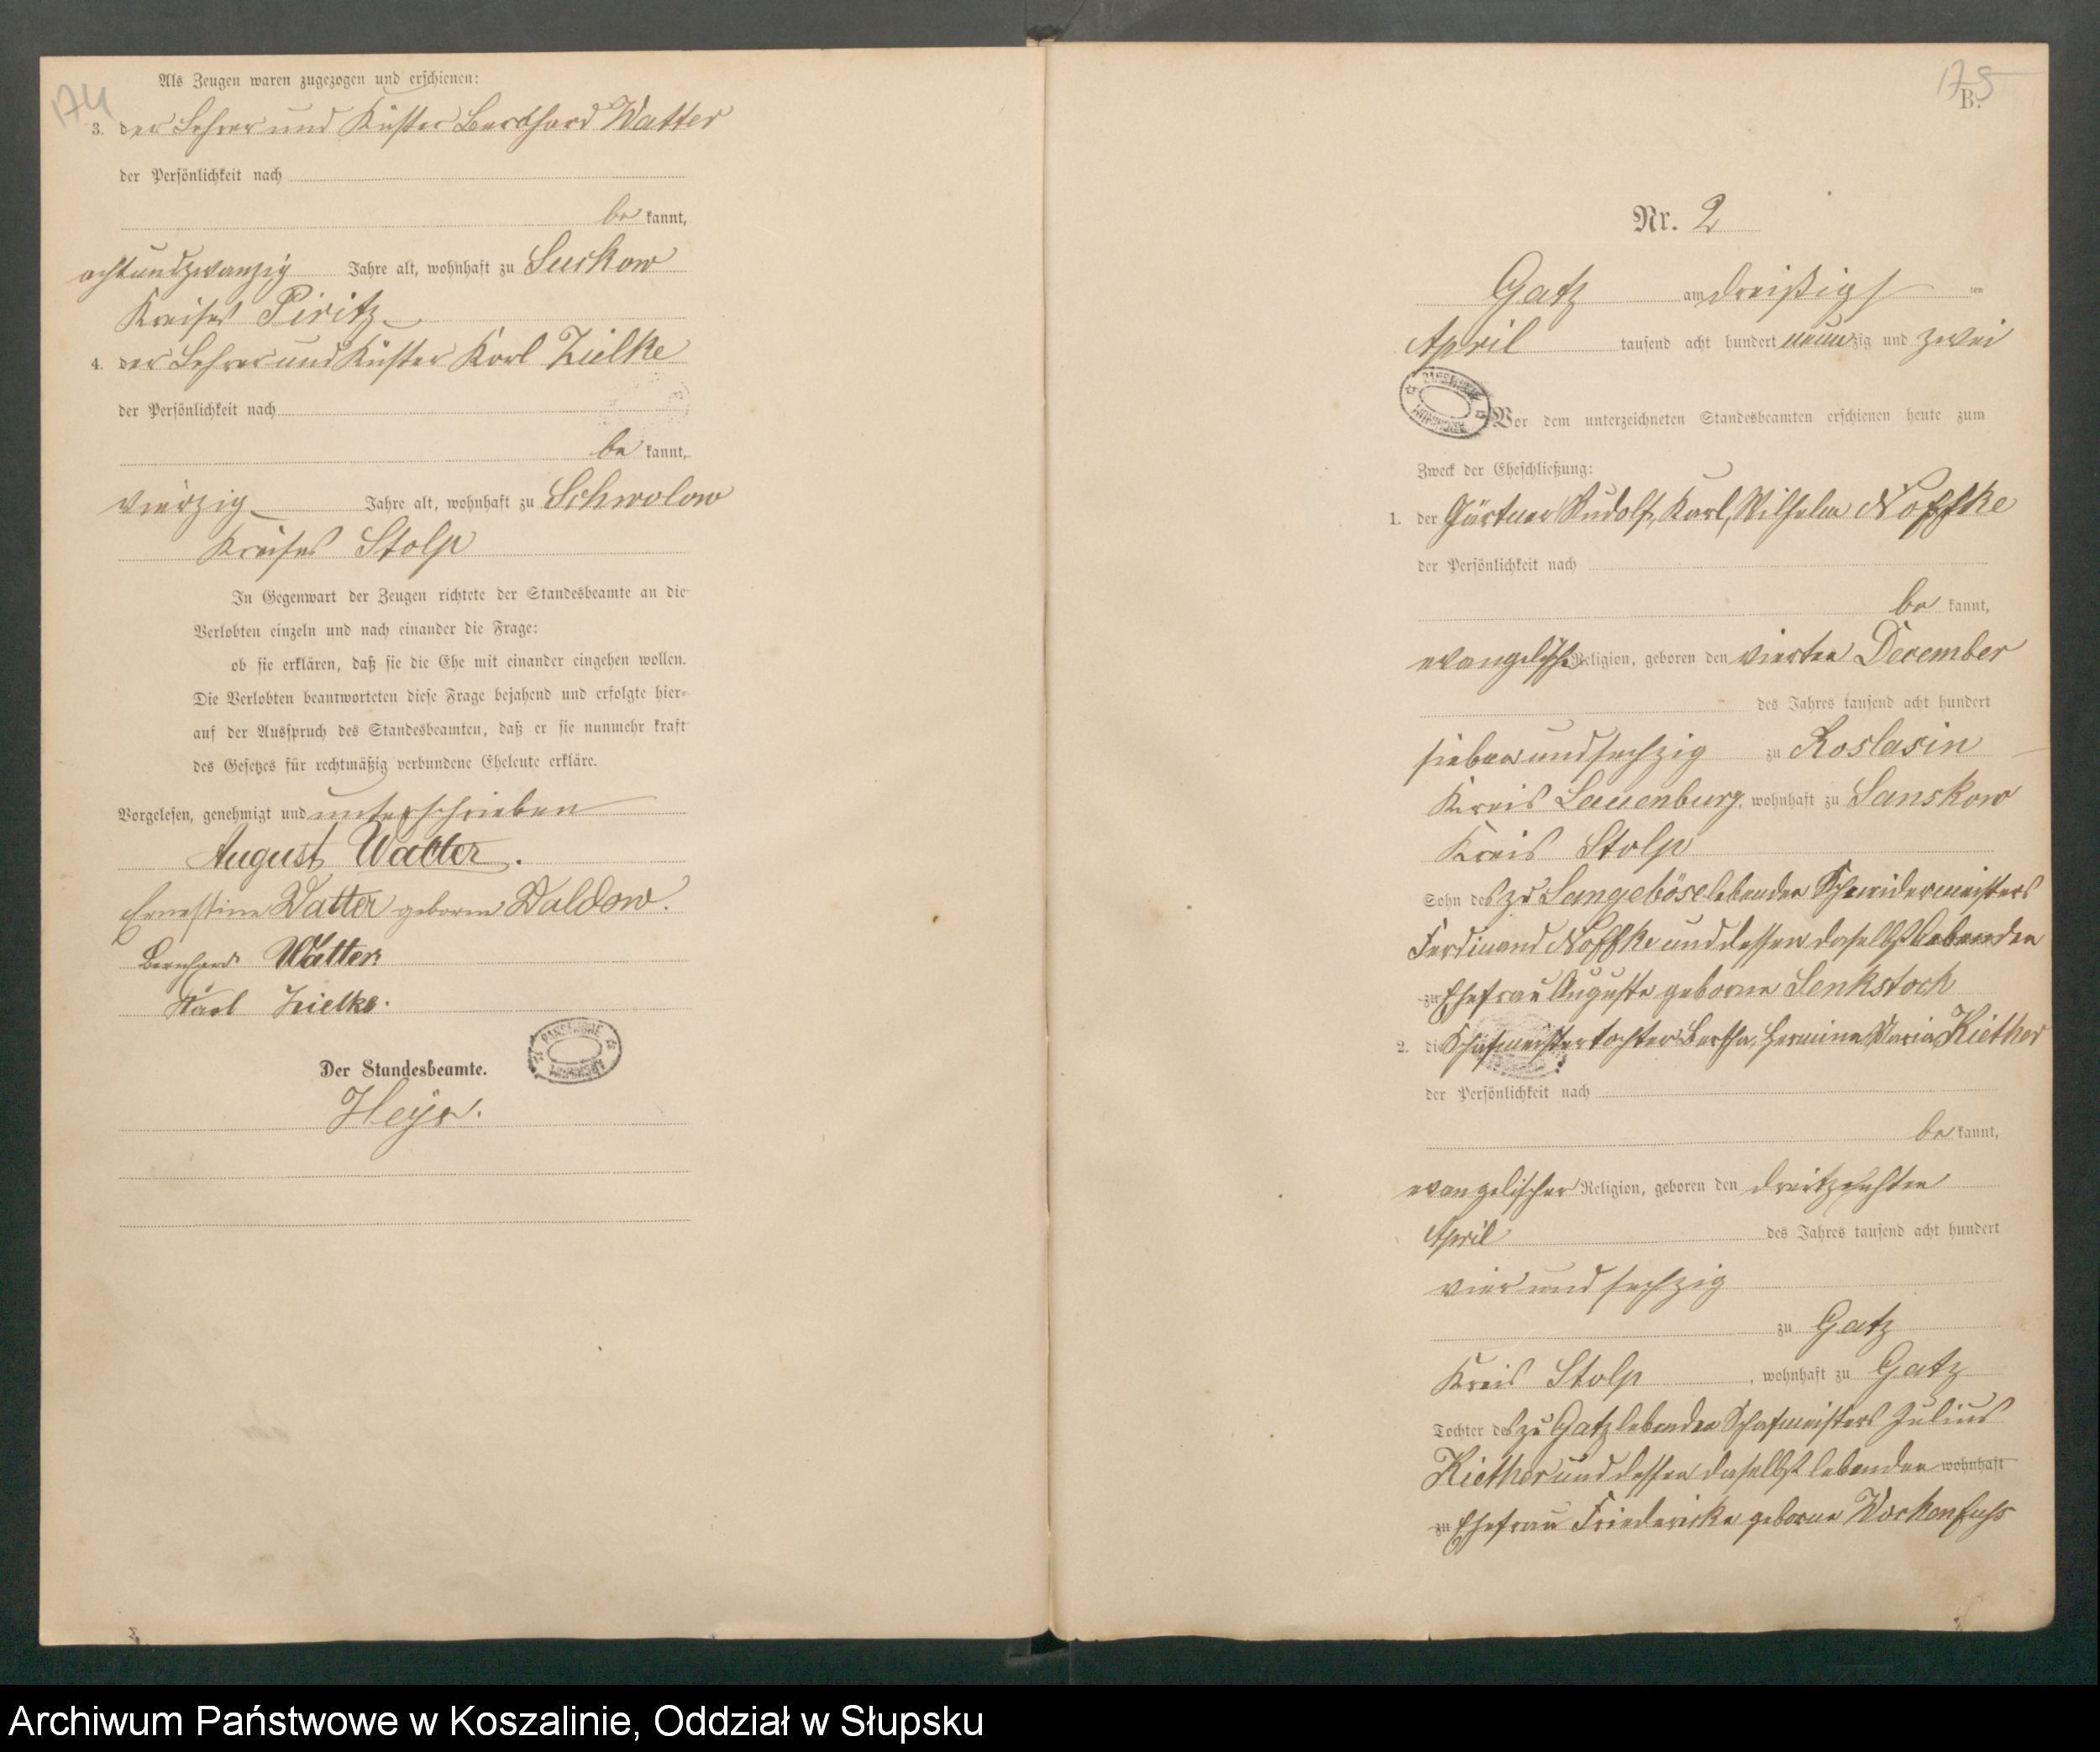 174
Als Zeugen waren zugezogen und erschienen:
3. der Lehrer und Küster Bernhard Watter
der Persönlichkeit nach
be kannt,
achtundzwanzig Jahre alt, wohnhaft zu Suckow
Kreises Piritz
4. der Lehrer und Küster Karl Zielke
der Persönlichkeit nach
be kannt,
vierzig Jahre alt, wohnhaft zu Schwolow
Kreises Stolp
In Gegenwart der Zeugen richtete der Standesbeamte an die
Verlobten einzeln und nach einander die Frage:
ob sie erklären, daß sie die Ehe mit einander eingehen wollen.
Die Verlobten beantworteten diese Frage bejahend und erfolgte hier-
auf der Ausspruch des Standesbeamten, daß er sie nunmehr kraft
des Gesetzes für rechtmäßig verbundene Eheleute erkläre.
Vorgelesen, genehmigt und unterschrieben
August Watter.
Ernestine Watter geborne Waldow.
Bernhard Watter
Karl Zielke.
Der Standesbeamte.
Heyn.
175
B.
Nr. 2
Gatz am dreißigst ten
April tausend acht hundert neun zig und zwei
Vor dem unterzeichneten Standesbeamten erschienen heute zum
Zweck der Eheschließung:
1. der Gärtner Rudolf, Karl, Wilhelm Noffke
der Persönlichkeit nach
be kannt,
evangelischer Religion, geboren den vierten December
des Jahres tausend acht hundert
sieben und sechzig zu Roslasin
Kreis Lauenburg, wohnhaft zu Sanskow
Kreis Stolp
Sohn des zu Langeböse lebenden Schneidermeisters
Ferdinand Noffke und dessen daselbst lebenden
zu Ehefrau Auguste geborne Senkstock
2. die Schafmeistertochter Bertha, Hermine Maria Kiether
der Persönlichkeit nach
be kannt,
evangelischer Religion, geboren den dreitzehnten
April des Jahres tausend acht hundert
vier und sechzig
zu Gatz
Kreis Stolp, wohnhaft zu Gatz
Tochter des zu Gatz lebenden Schafmeisters Julius
Kiether und dessen daselbst lebenden wohnhaft
zu Ehefrau Friedericke geborne Wockenfuss
Archiwum Państwowe w Koszalinie, Oddział w Słupsku